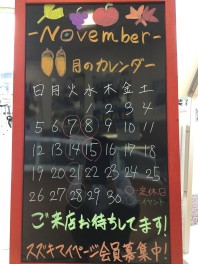 -November-
月のカレンダー
日月火水木金土
1 2 3 4
5 6 7 8 9 10 11
12 13 14 15 16 17 18
19 20 21 22 23 24 25
26 27 28 29 30
○…定休日
イベント
ご来店お待ちしてます!
スズキマイページ会員募集中!